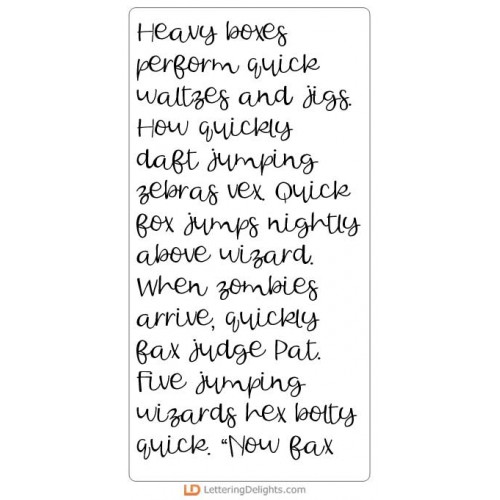 Heavy boxes
perform quick
waltzes and jigs.
How quickly
daft jumping
zebras vex. Quick
fox jumps nightly
above wizard.
When zombies
arrive, quickly
fax judge Pat.
Five jumping
wizards hex bolty
quick. “Now fax
LD LetteringDelights.com